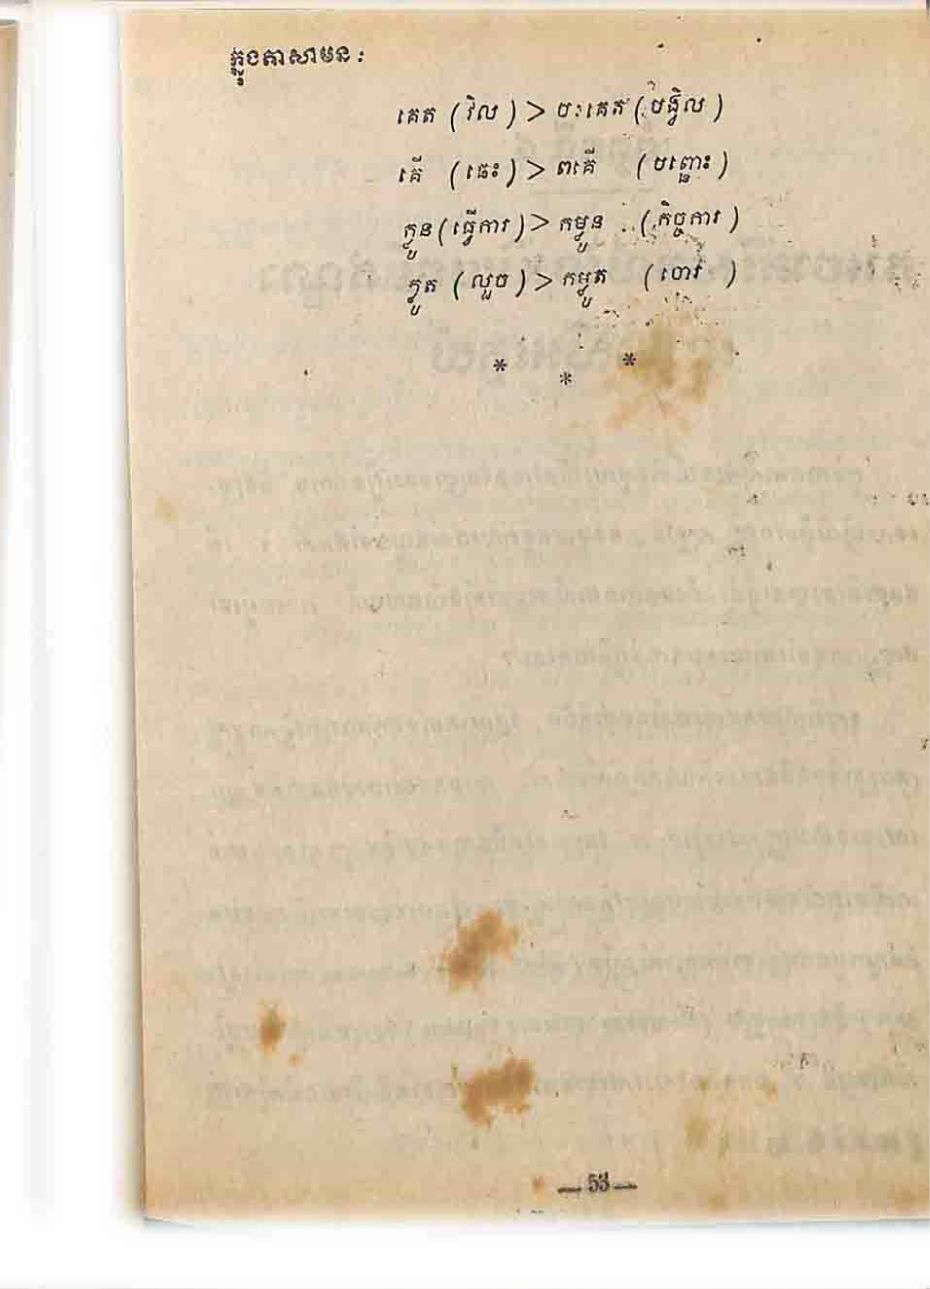 ក្នុងភាសាមន :
គេត ( វិល ) > ប:គេត ( បង្វិល )
គើ ( ធេះ ) > ពគើ ( បញ្ឆេះ )
ក្លូន ( ធ្វើការ ) > កម្លូន ( កិច្ចការ )
ក្លូត ( លួច ) > កម្លូត ( ចោរ )
* * *
— 53 —